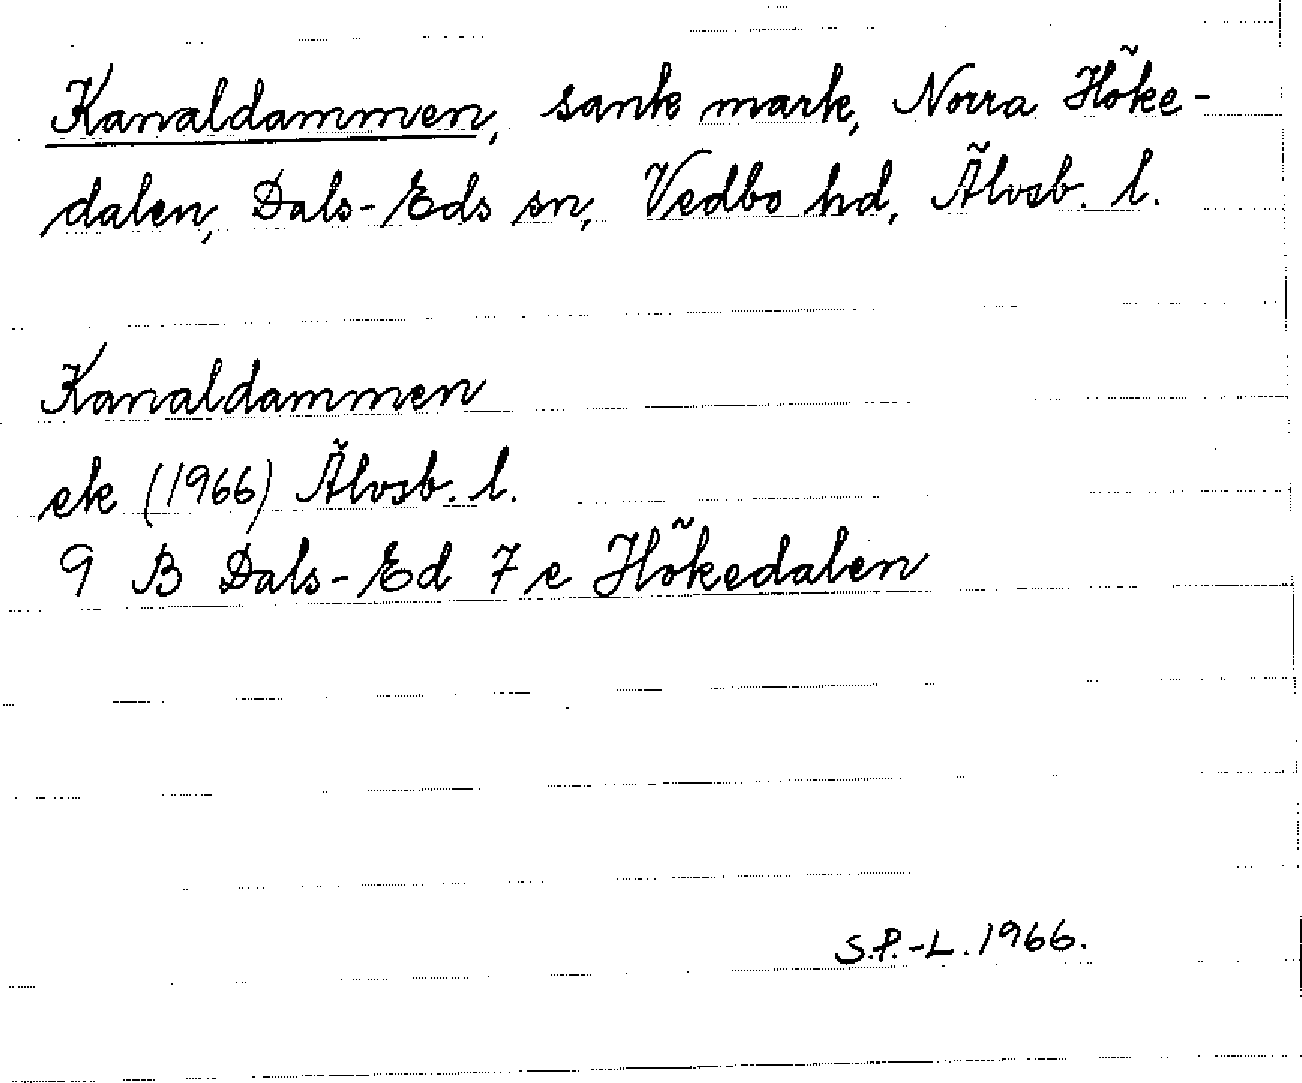 Kanaldammen, sank mark, Norra Höke-
dalen, Dals-Eds sn, Vedbo hd, Älvsb. l.
Kanaldammen
ek (1966) Älvsb. l.
9 B Dals-Ed 7 e Hökedalen
S.P.-L. 1966.